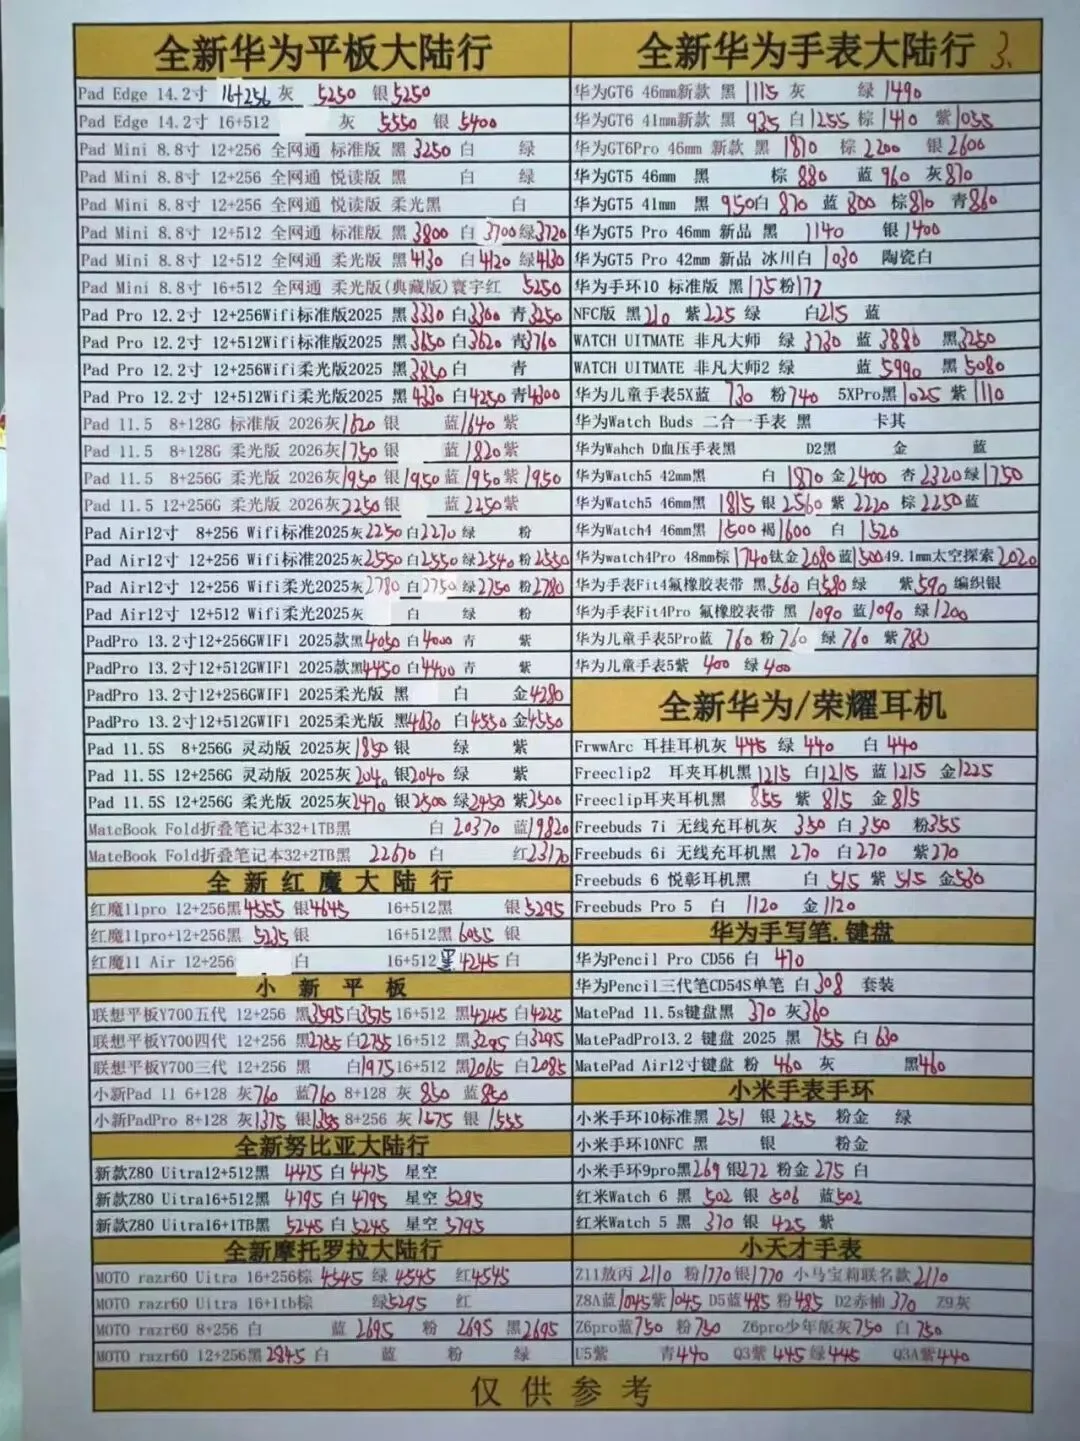 全新华为平板大陆行
Pad Edge 14.2寸 16+256 灰 5250 银5250
Pad Edge 14.2寸 16+512 灰 5550 银 5400
Pad Mini 8.8寸 12+256 全网通 标准版 黑 3250 白 绿
Pad Mini 8.8寸 12+256 全网通 悦读版 黑 白 绿
Pad Mini 8.8寸 12+256 全网通 悦读版 柔光黑 白
Pad Mini 8.8寸 12+512 全网通 标准版 黑3800 白 3700绿3720
Pad Mini 8.8寸 12+512 全网通 柔光版 黑4130 白4120 绿4130
Pad Mini 8.8寸 16+512 全网通 柔光版(典藏版)寰宇红 5250
Pad Pro 12.2寸 12+256Wifi标准版2025 黑3330 白3300 青3250
Pad Pro 12.2寸 12+512Wifi标准版2025 黑3650 白3620 青3760
Pad Pro 12.2寸 12+256Wifi柔光版2025 黑3850白 青
Pad Pro 12.2寸 12+512Wifi柔光版2025 黑4330 白4250 青4300
Pad 11.5 8+128G 标准版 2026灰1620 银 蓝1640 紫
Pad 11.5 8+128G 柔光版 2026灰1750 银 蓝1820紫
Pad 11.5 8+256G 柔光版 2026灰1950 银1950 蓝1950 紫1950
Pad 11.5 12+256G 柔光版 2026灰2250 银 蓝 2250紫
Pad Air12寸 8+256 Wifi标准2025灰2250 白2270 绿 粉
Pad Air12寸 12+256 Wifi标准2025灰2550 白2550 绿2540 粉2550
Pad Air12寸 12+256 Wifi柔光2025灰2780 白2750 绿2750 粉2780
Pad Air12寸 12+512 Wifi柔光2025灰 白 绿 粉
PadPro 13.2寸12+256GWIF1 2025款黑4050 白4000 青 紫
PadPro 13.2寸12+512GWIF1 2025款黑4450 白4400 青 紫
PadPro 13.2寸12+256GWIF1 2025柔光版 黑 白 金4280
PadPro 13.2寸12+512GWIF1 2025柔光版 黑4630 白4550 金4550
Pad 11.5S 8+256G 灵动版 2025灰1850 银 绿 紫
Pad 11.5S 12+256G 灵动版 2025灰2040 银2040 绿 紫
Pad 11.5S 12+256G 柔光版 2025灰2470 银2500 绿2450 紫2500
MateBook Fold折叠笔记本32+1TB黑 白 20370 蓝19820
MateBook Fold折叠笔记本32+2TB黑 22670 白 红23170
全新红魔大陆行
红魔11pro 12+256黑4555 银4645 16+512黑 银5295
红魔11pro+12+256黑 5235银 16+512黑6055 银
红魔11 Air 12+256 白 16+512黑4245 白
小新平板
联想平板Y700五代 12+256 黑3595白3575 16+512 黑4245 白4225
联想平板Y700四代 12+256 黑2785白2785 16+512 黑3295白3295
联想平板Y700三代 12+256 黑 白1975 16+512 黑2065 白2085
小新Pad 11 6+128 灰760 蓝760 8+128 灰 850 蓝850
小新PadPro 8+128 灰1375 银1355 8+256 灰 1575 银 1555
全新努比亚大陆行
新款Z80 Uitra12+512黑 4475 白 4475 星空
新款Z80 Uitra16+512黑 4795 白 4795 星空 5295
新款Z80 Uitra16+1TB黑 5245 白 5245 星空 5795
全新摩托罗拉大陆行
MOTO razr60 Uitra 16+256棕 4545 绿 4545 红4545
MOTO razr60 Uitra 16+1tb棕 绿5295 红
MOTO razr60 8+256 白 蓝 2695 粉 2695 黑2695
MOTO razr60 12+256黑2845 白 蓝 粉 绿
全新华为手表大陆行 3.
华为GT6 46mm新款 黑 1115 灰 绿 1490
华为GT6 41mm新款 黑 935 白1255 棕 1410 紫1055
华为GT6Pro 46mm 新款 黑 1810 棕 2200 银2600
华为GT5 46mm 黑 棕 880 蓝 960 灰870
华为GT5 41mm 黑 950白 870 蓝 800 棕810 青860
华为GT5 Pro 46mm 新品 黑 1140 银1400
华为GT5 Pro 42mm 新品 冰川白 1030 陶瓷白
华为手环10 标准版 黑175粉177
NFC版 黑210 紫225 绿 白215 蓝
WATCH UITMATE 非凡大师 绿 3730 蓝 3880 黑3250
WATCH UITMATE 非凡大师2 绿 蓝 5990 黑 5080
华为儿童手表5X蓝 730 粉740 5XPro黑1025 紫 1110
华为Watch Buds 二合一手表 黑 卡其
华为Wahch D血压手表黑 D2黑 金 蓝
华为Watch5 42mm黑 白 1870 金2400 杏 2320绿1750
华为Watch5 46mm黑 1815 银 2560 紫 2220 棕 2250蓝
华为Watch4 46mm黑 1500 褐1600 白 1520
华为watch4Pro 48mm棕1740钛金2080蓝150049.1mm太空探索2020
华为手表Fit4氟橡胶表带 黑560 白580 绿 紫590 编织银
华为手表Fit4Pro 氟橡胶表带 黑 1090 蓝1090 绿1200
华为儿童手表5Pro蓝 760 粉760 绿 760 紫780
华为儿童手表5紫 400 绿400
全新华为/荣耀耳机
FrwwArc 耳挂耳机灰 445 绿 440 白 440
Freeclip2 耳夹耳机黑1215 白1215 蓝1215 金1225
Freeclip耳夹耳机黑 855 紫 815 金 815
Freebuds 7i 无线充耳机灰 350 白 350 粉355
Freebuds 6i 无线充耳机黑 270 白270 紫270
Freebuds 6 悦彰耳机黑 白 515 紫 515 金530
Freebuds Pro 5 白 1120 金1120
华为手写笔.键盘
华为Pencil Pro CD56 白 470
华为Pencil三代笔CD54S单笔 白308 套装
MatePad 11.5s键盘黑 370 灰360
MatePadPro13.2 键盘 2025 黑 755 白 630
MatePad Air12寸键盘 粉 460 灰 黑460
小米手表手环
小米手环10标准黑 251 银 255 粉金 绿
小米手环10NFC 黑 银 粉金
小米手环9pro黑269 银272 粉金 275 白
红米Watch 6 黑 502 银 506 蓝502
红米Watch 5 黑 370 银 425 紫
小天才手表
Z11放丙 2110 粉1770银1770 小马宝莉联名款2110
Z8A蓝1045紫1045 D5蓝485 粉485 D2赤柚 370 Z9灰
Z6pro蓝750 粉 750 Z6pro少年版灰750 白 750
U5紫 青440 Q3紫 445绿445 Q3A紫440
仅供参考